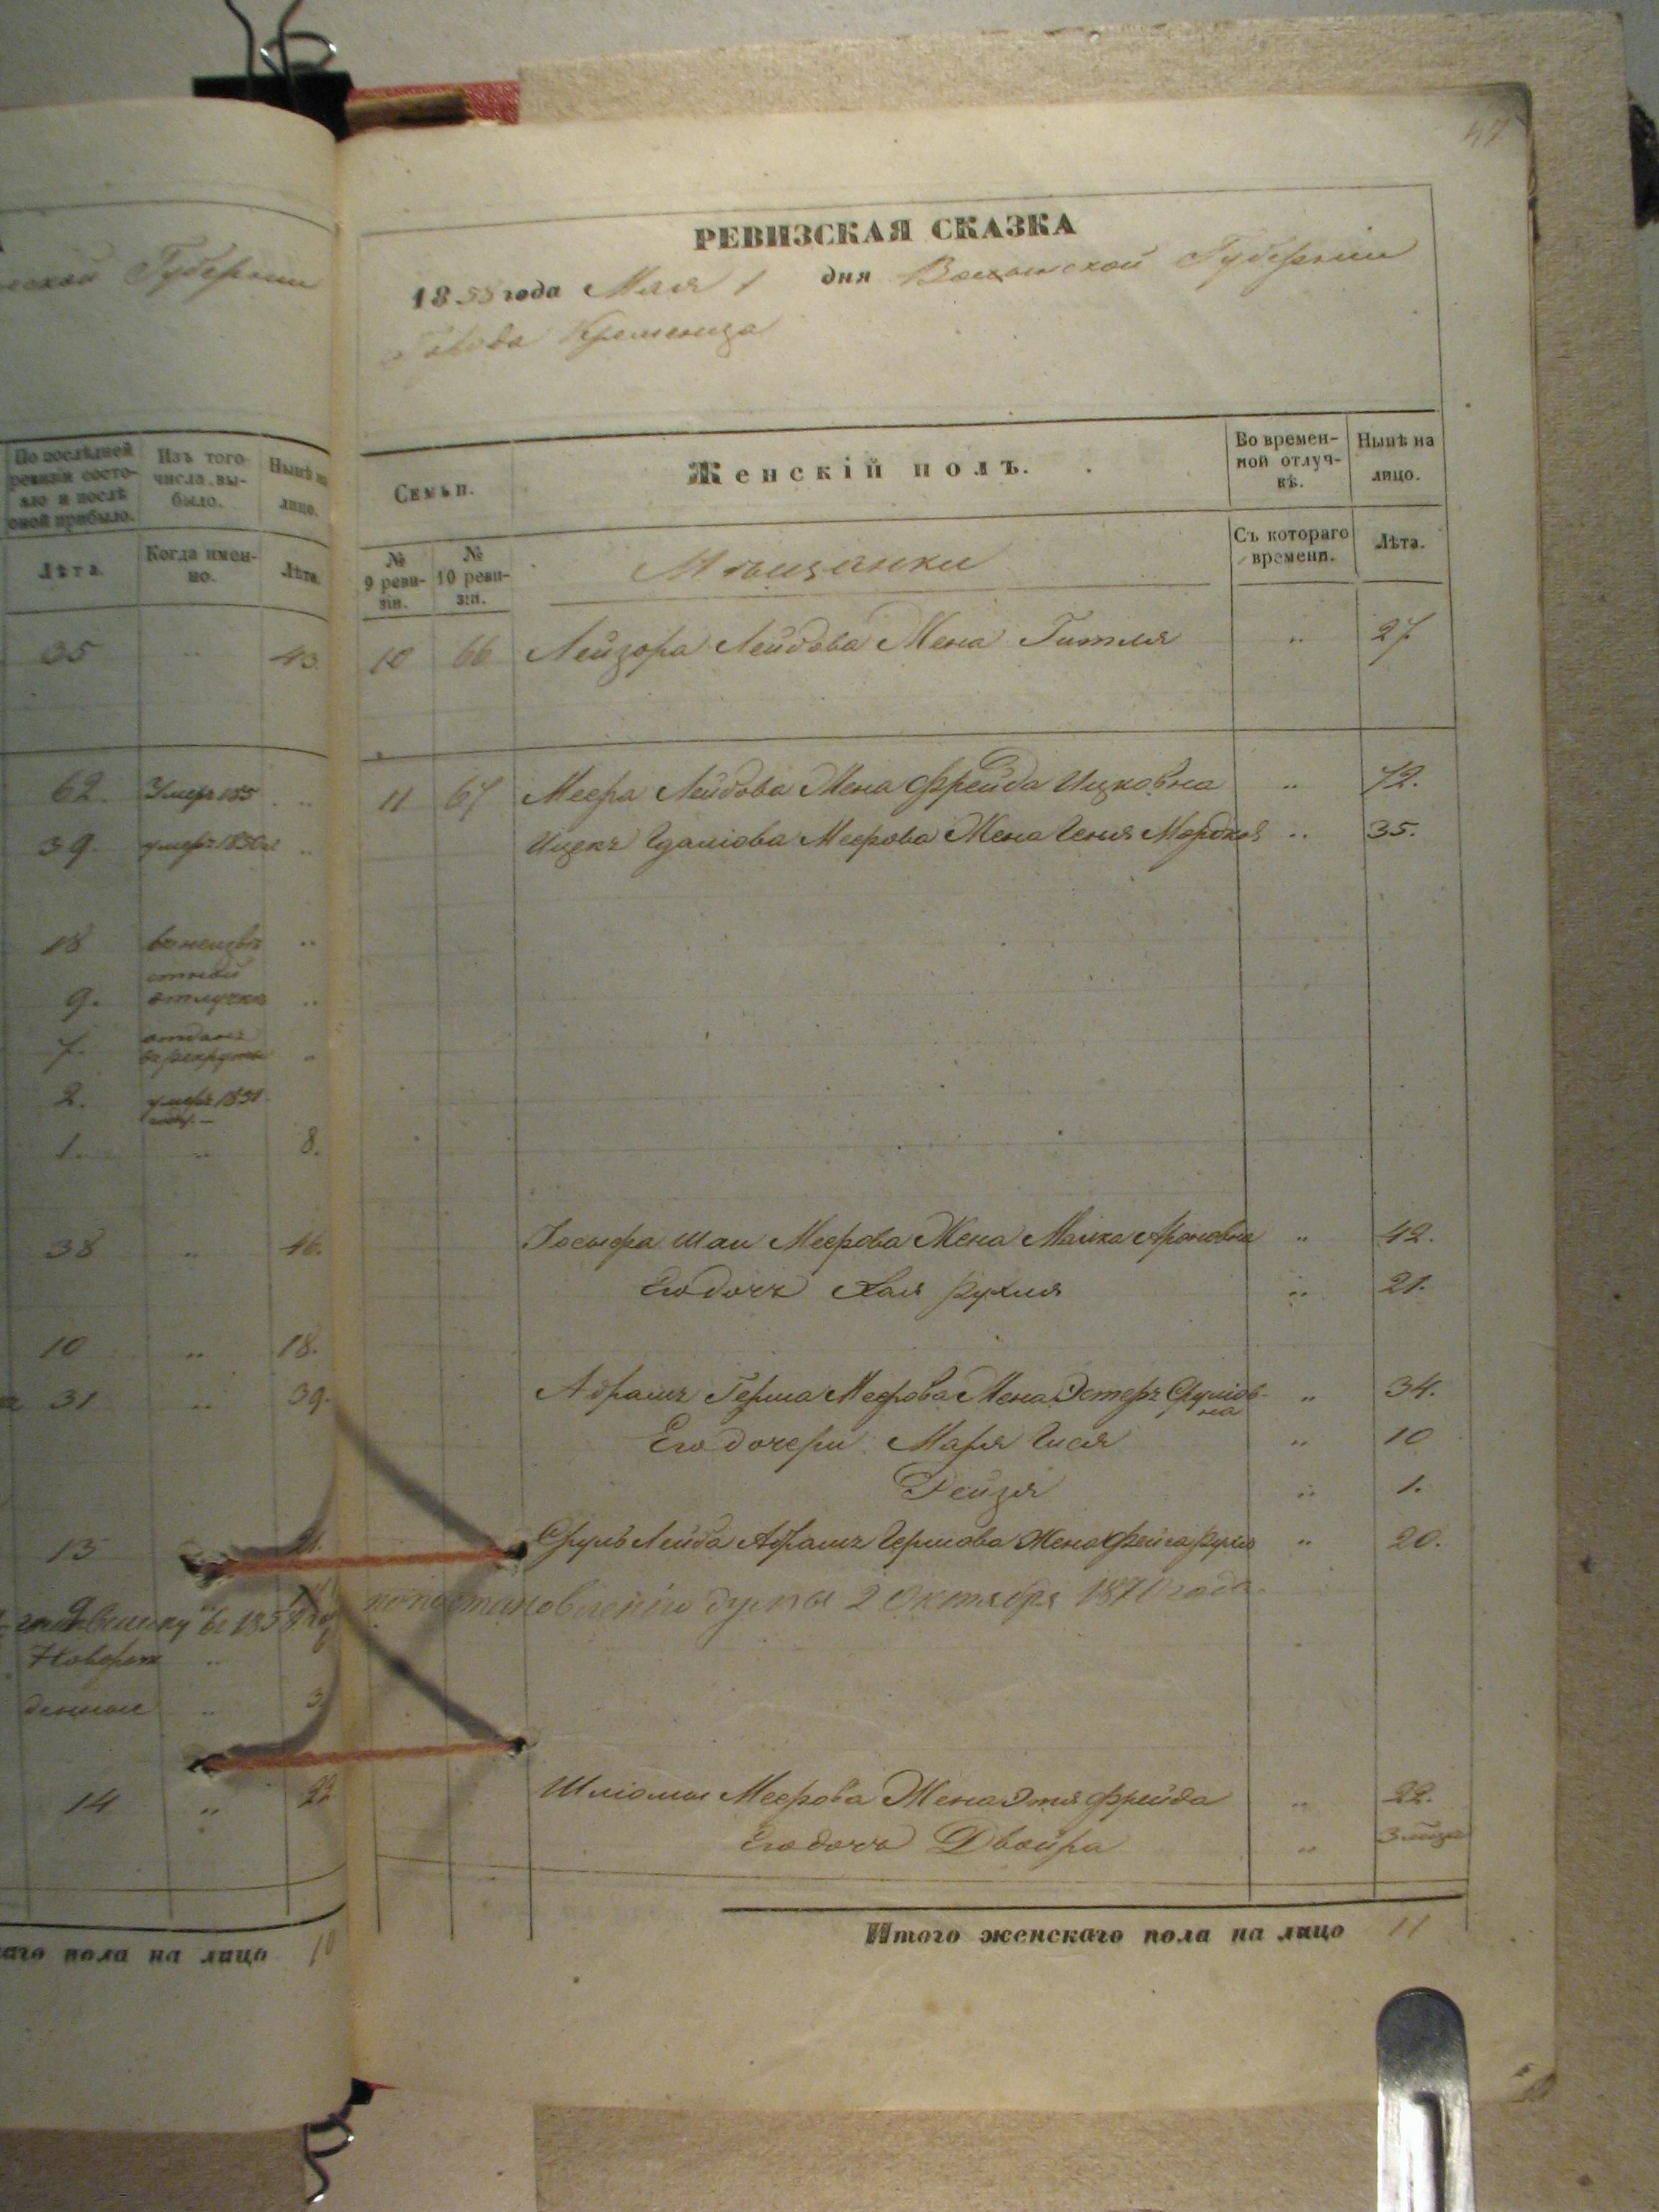 47
ской Губернии
РЕВИЗСКАЯ СКАЗКА
1858 года Мая 1 дня Волынской Губернии
Города Кременца
По последней ревизіи состояло и послѣ оной прибыло.
Изъ того числа вы-было.
Нынѣ на лицо.
Лѣта
Когда имен-но.
Лѣта
35 " 43.
62. Умеръ 185
39. умеръ 1850
18 въ неизвѣ
стной
9. отлучкѣ
7. отданъ
въ рекруты
2. умеръ 1851
году.
1. " 8.
38 " 46.
10 " 18.
31 " 39.
13 21.
въ 185
Новорож
денный " 3
14 " 22
аго пола на лицо 10
Семьи.
Женскій полъ.
Во времен-
ной отлуч-
кѣ.
Нынѣ на
лицо.
№
9 реви-
зіи.
№
10 реви-
зіи.
Мѣщанки
Съ котораго
времени.
Лѣта.
10 66 Лейзора Лейбова Жена Гитля " 27
11 67 Меера Лейбова Жена Фрейда Ицковна " 72.
Ицекъ Гдаліова Меерова Жена Геня Мордков " 35.
Іосыфа Шаи Меерова Жена Малка Ароновна " 42.
Его дочь Хая Рухля " 21.
Абрамъ Герша Меерова Жена Эстеръ Сруліов-
на " 34.
Его дочери Маря Гися " 10
Рейзя " 1.
Сруль Лейба Абрамъ Гершова Жена Фейга Рухля " 20.
по постановленію думы 2 Октября 1870 года.
Шліомы Меерова Жена Этя Фрейда " 22.
Его дочь Двойра "
Итого женскаго пола на лицо 11